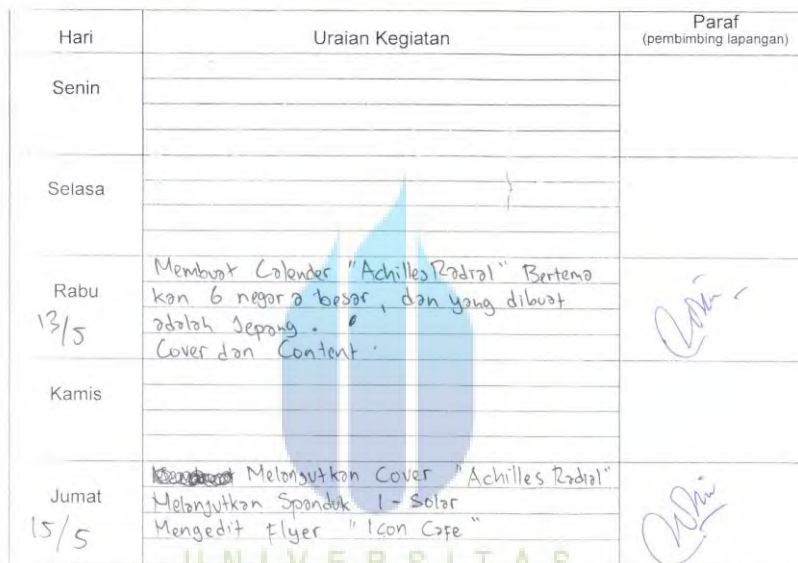 Hari Uraian Kegiatan Paraf
(pembimbing lapangan)
Senin
Selasa
Rabu
13/5
Membuat Calender "Achilles Radial" Bertema
kan 6 negara besar, dan yang dibuat
adalah Jepang.
Cover dan Content.
Kamis
Jumat
15/5
Melanjutkan Cover "Achilles Radial"
Melanjutkan Spanduk I-Solar
Mengedit Flyer "Icon Cafe"
UNIVERSITAS